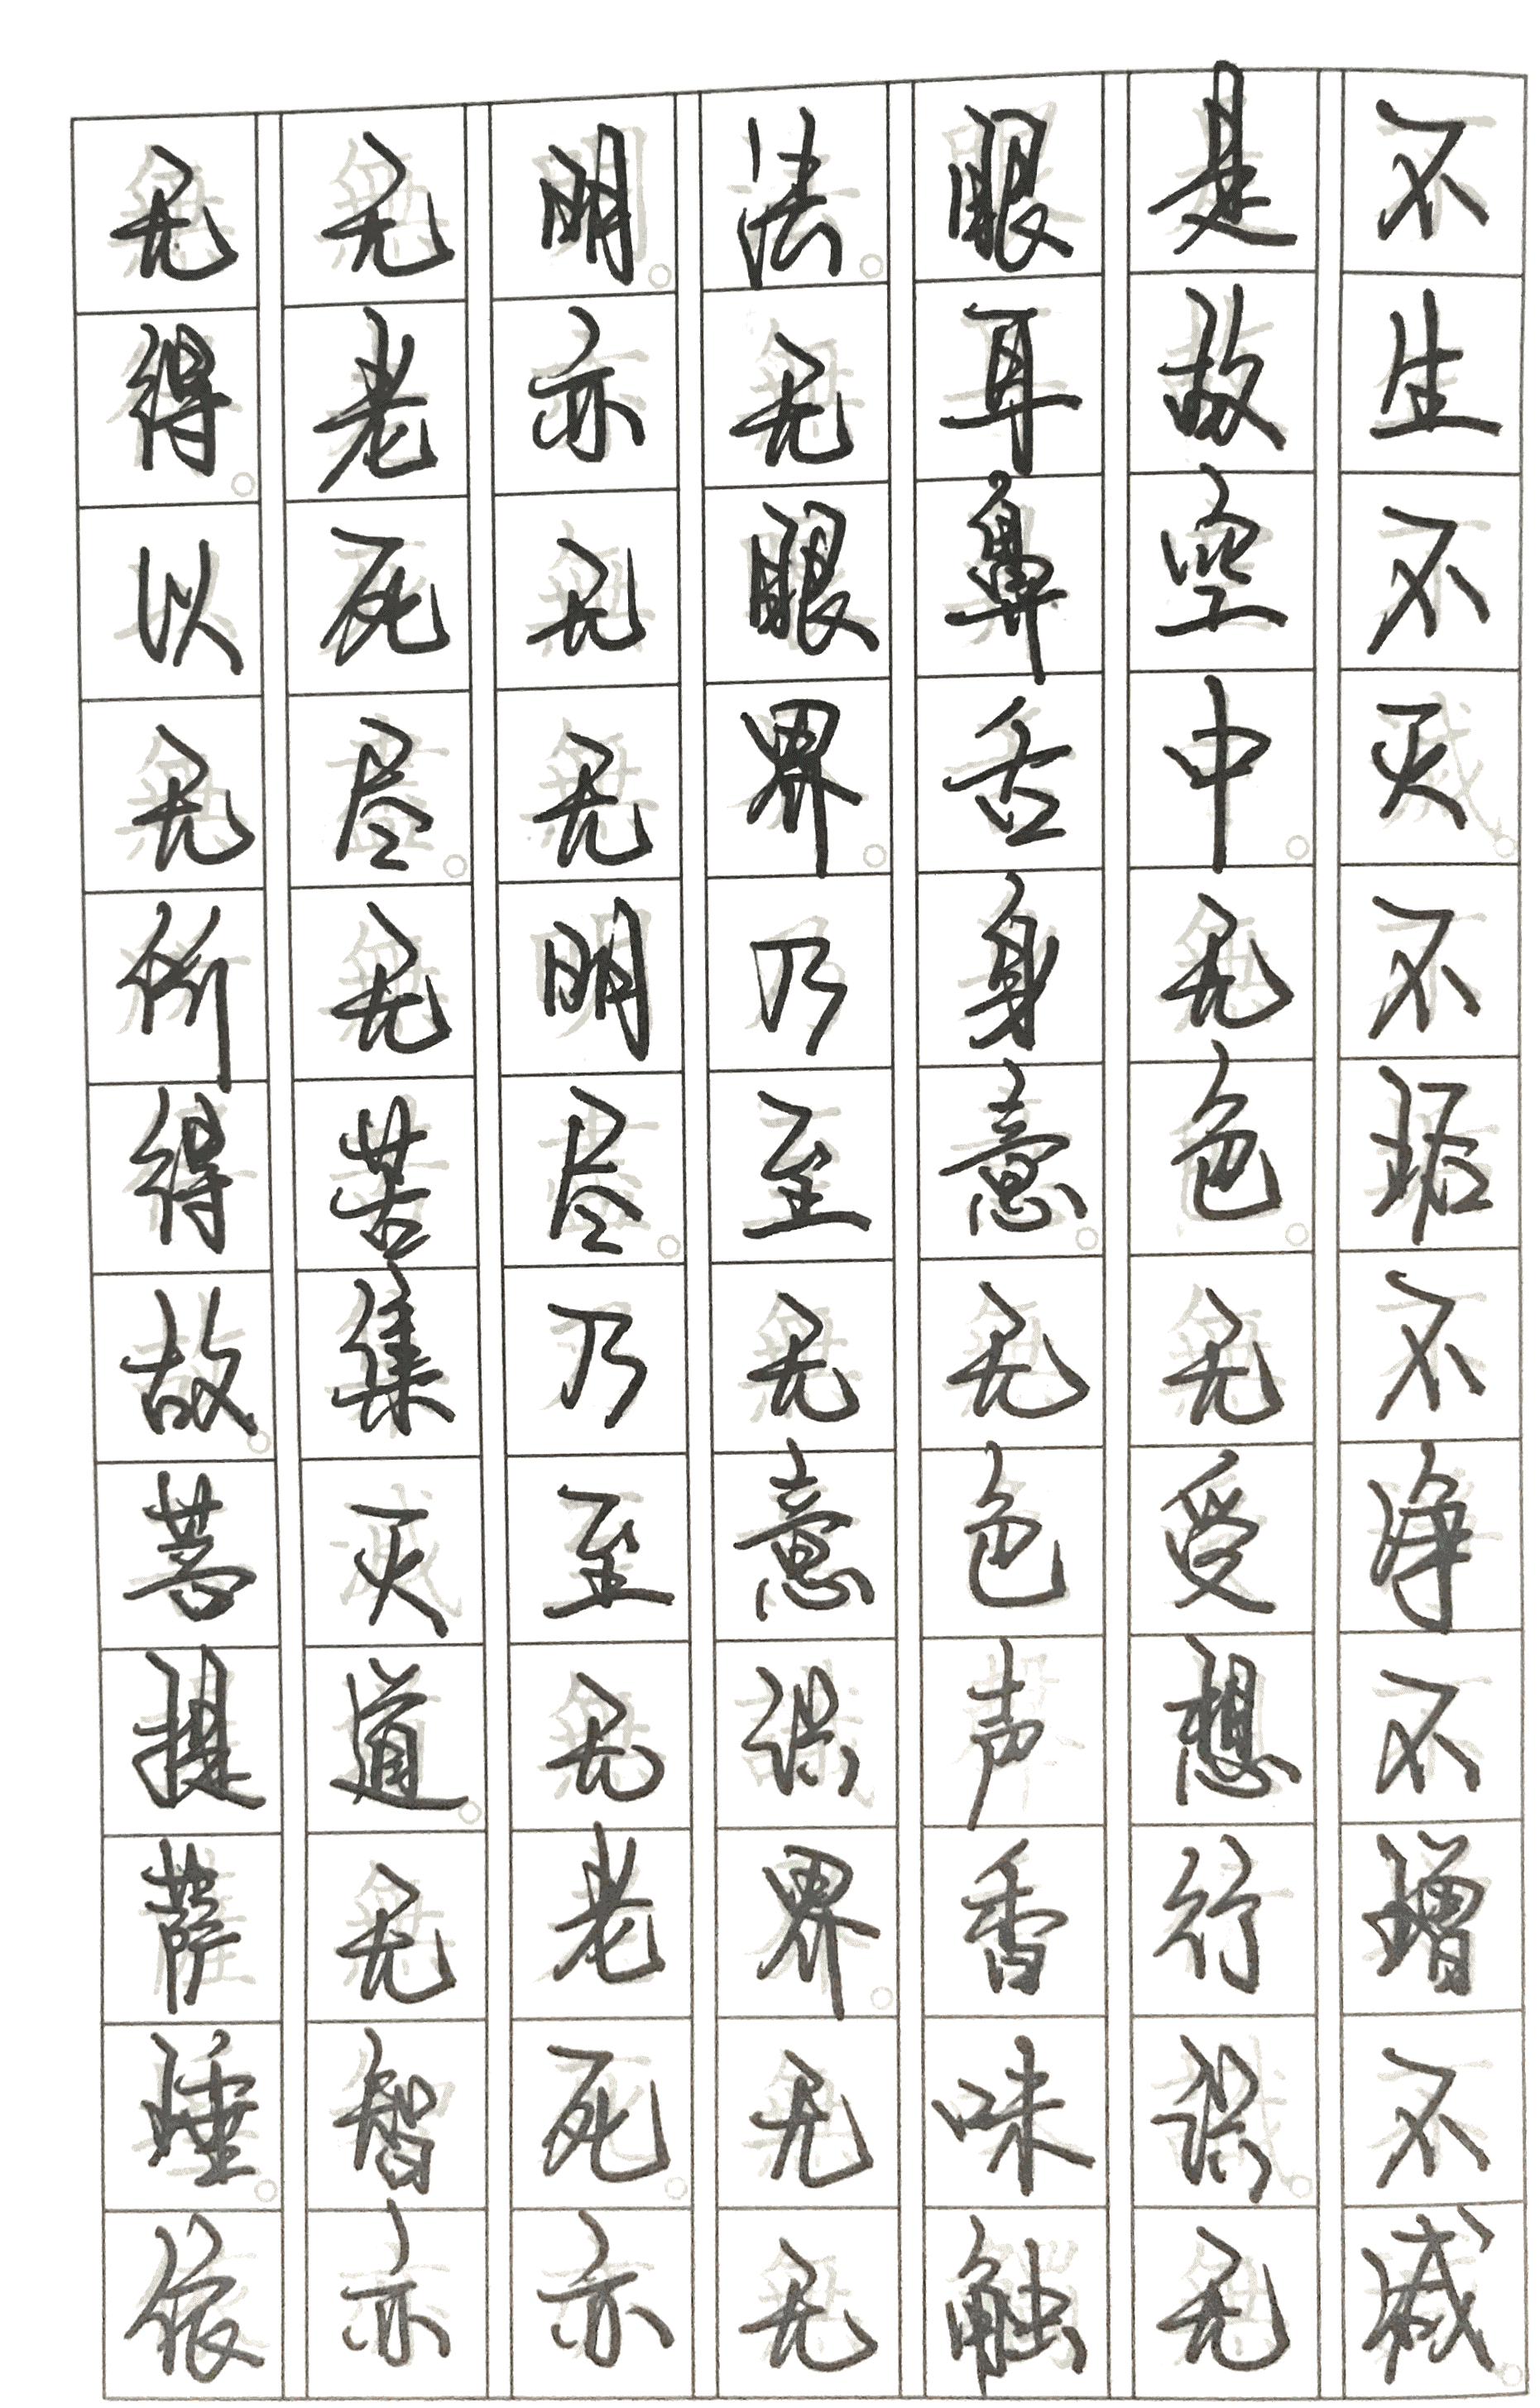 不生不灭不垢不净不增不减
是故空中无色无受想行识无
眼耳鼻舌身意无色声香味触
法无眼界乃至无意识界无无
明亦无无明尽乃至无老死亦
无老死尽无苦集灭道无智亦
无得以无所得故菩提萨埵依